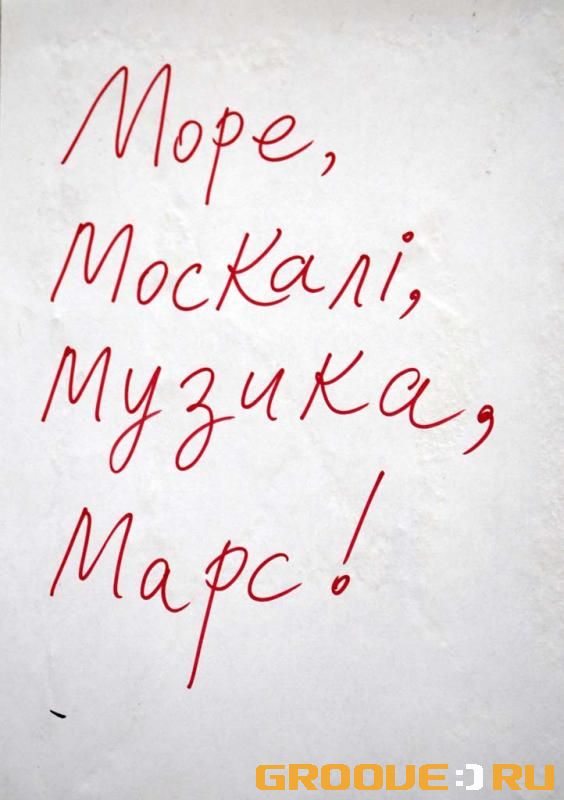 Море,
Москалі,
Музика,
Марс!
GROOVE:)RU